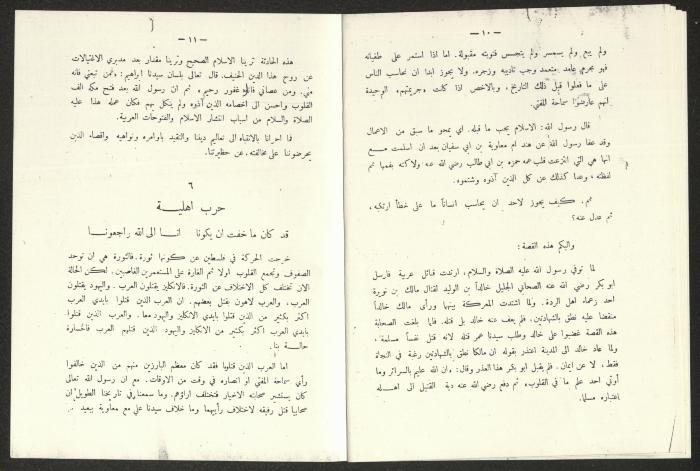 — ١٠ —
ولم يبع ولم يسمسر ولم يتجسس فتوبته مقبولة. اما اذا استمر على طغيانه
فهو مجرم عامد متعمد وجب تأديبه وزجره. ولا يجوز ابدا ان نحاسب الناس
على ما فعلوا قبل ذلك التاريخ، وبالاخص اذا كانت «جريمتهم» الوحيدة
انهم عارضوا سماحة المفتي.
قال رسول الله: الاسلام يجب ما قبله. اي يمحو ما سبق من الاعمال
وقد عفا رسول الله عن هند ام معاوية بن ابي سفيان بعد ان اسلمت مع
انها هي التي انتزعت قلب عمه حمزه بن ابي طالب رضي الله عنه ولاكته بفمها ثم
لفظته، وعفا كذلك عن كل الذين آذوه وشتموه.
نعم. كيف يجوز لاحد ان يحاسب انساناً ما على خطأ ارتكبه،
ثم عدل عنه؟
واليكم هذه القصة:
لما توفي رسول الله عليه الصلاة والسلام، ارتدت قبائل عربية فارسل
ابو بكر رضي الله عنه الصحابي الجليل خالداً بن الوليد لقتال مالك بن نويرة
احد زعماء اهل الردة. ولما اشتدت المعركة بينها ورأى مالك خالداً
منقضا عليه نطق بالشهادتين. فلم يعف عنه خالد بل قتله. فلما بلغت الصحابة
هذه القصة غضبوا على خالد وطلب سيدنا عمر قتله لانه قتل نفساً مسلمة.
ولما عاد خالد الى المدينة اعتذر بقوله ان مالكا نطق بالشهادتين رغبة في النجاة
فقط، لا عن ايمان. فلم يقبل ابو بكر هذا العذر وقال: «ان الله عليم بالسرائر وما
أوتي احد علم ما في القلوب» ثم دفع رضي الله عنه دية القتيل الى اهله
باعتباره مسلما.
— ١١ —
هذه الحادثة ترينا الاسلام الصحيح وترينا مقدار بعد مدبري الاغتيالات
عن روح هذا الدين الحنيف. قال تعالى بلسان سيدنا ابراهيم: «فمن تبعني فانه
مني. ومن عصاني فانك غفور رحيم» ثم ان رسول الله بعد فتح مكه الف
القلوب واحسن الى اخصامه الذين آذوه ولم ينكل بهم فكان عمله هذا عليه
الصلاة والسلام من اسباب انتشار الاسلام والفتوحات العربية.
فما احرانا بالانتباه الى تعاليم ديننا والتقيد باوامره ونواهيه واقصاء الذين
يحرضوننا على مخالفته. عن حظيرتنا.
٦
حرب اهلية
قد كان ما خفت ان يكونا انا الى الله راجعونا
خرجت الحركة في فلسطين عن كونها ثورة. فالثورة هي ان توحد
الصفوف وتجمع القلوب اولا ثم الغارة على المستعمرين الغاصبين. لكن الحالة
الان تختلف كل الاختلاف عن الثورة. فالانكليز يقتلون العرب. واليهود يقتلون
العرب، والعرب لاهون بقتل بعضهم. ان العرب الذين قتلوا بايدي العرب
اكثر بكثير من الذين قتلوا بايدي الانكليز واليهود معا. والعرب الذين قتلوا
بايدي العرب اكثر بكثير من الانكليز واليهود الذين قتلهم العرب فالخسارة
حالـــة بنا.
اما العرب الذين قتلوا فقد كان معظم البارزين منهم من الذين خالفوا
رأي سماحة المفتي او انصاره في وقت من الاوقات. مع ان رسول الله تعالى
كان يستشير صحابته الاخيار فتختلف اراؤهم. وما سمعنا في تاريخنا الطويل ان
صحابيا قتل رفيقه لاختلاف رأييهما وما خلاف سيدنا علي مع معاوية ببعيد